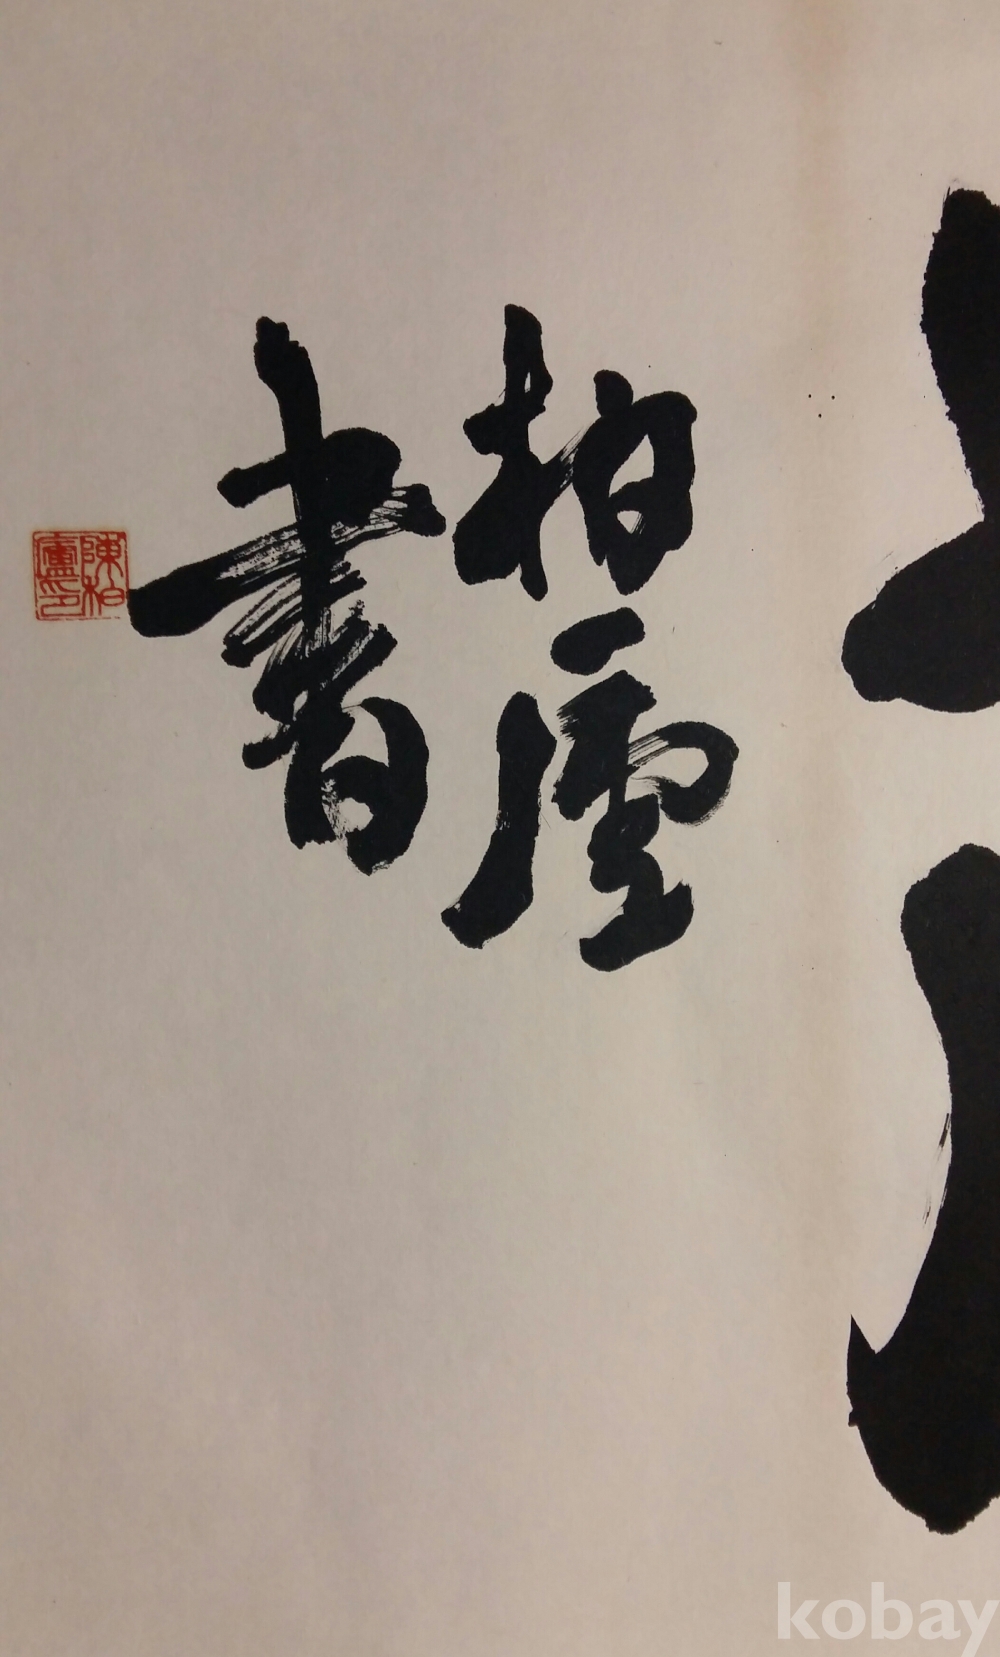 柏廬
書
陳柏
廬印
kobay